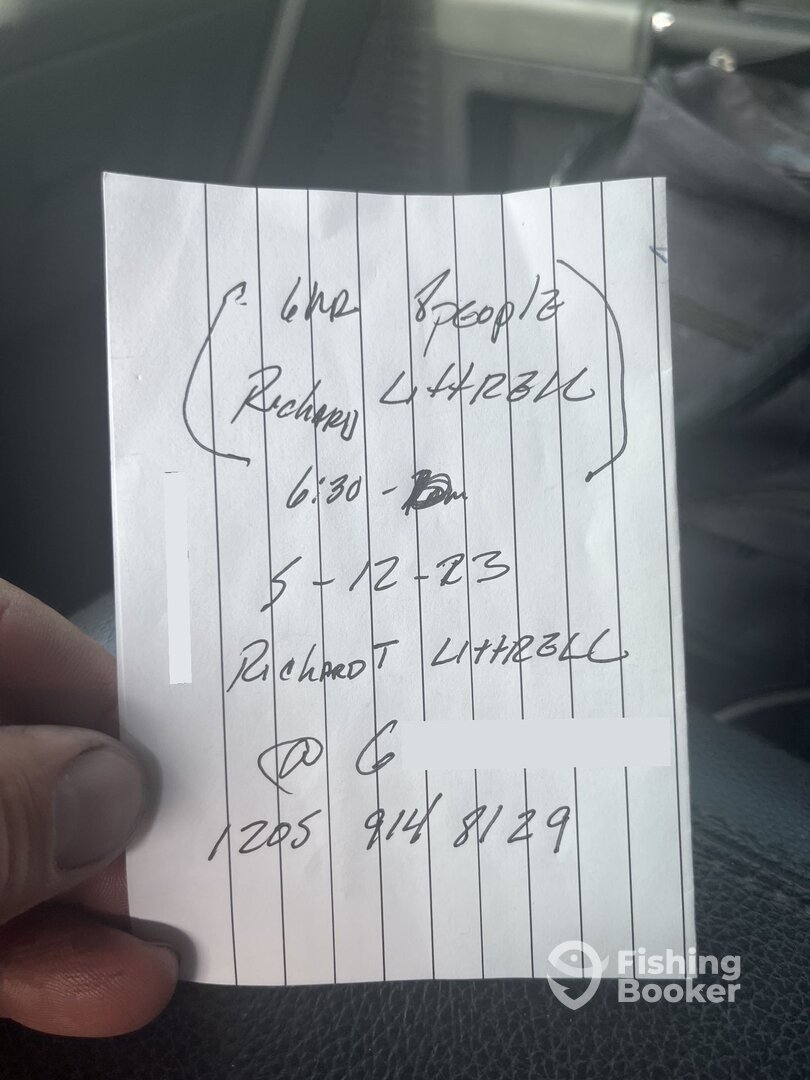 6 HR 8 PEOPLE
RICHARD LITTRELL
6:30 -
5-12-23
RICHARD T LITTRELL
@ G
1205 914 8129
Fishing
Booker